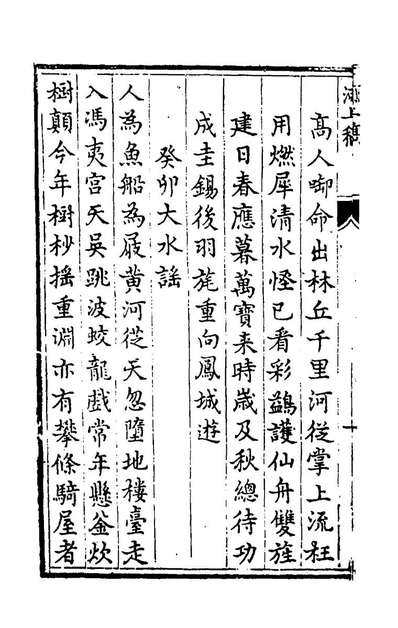 高人啣命出林丘千里河從掌上流枉
用燃犀清水怪已看彩鷁護仙舟雙旌
建日春應暮萬寶来時歳及秋總待功
成圭錫後羽旄重向鳳城遊
癸卯大水謡
人為魚船為屐黄河從天忽墮地樓臺走
入馮夷宫天吳跳波蛟龍戲常年懸釜炊
樹顛今年樹杪摇重淵亦有攀條騎屋者
上稿
十